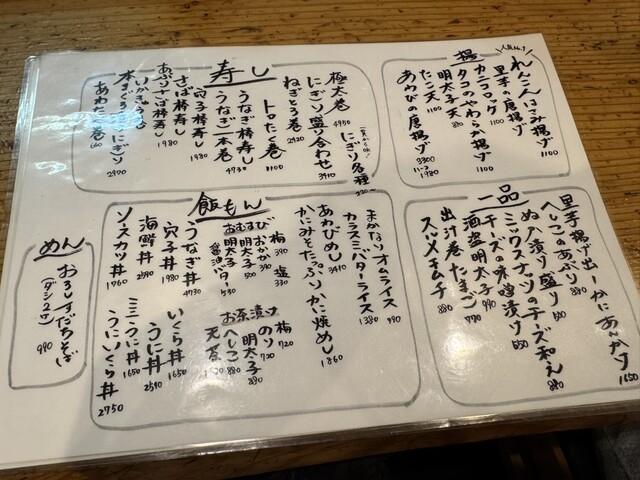 寿し
極太巻 4950
にぎり各種
にぎり盛り合わせ 3410
ねぎとろ巻 2420
トロたく巻 1100
うなぎ棒寿し
うなぎ一本巻 4730
穴子棒寿し 1980
さば棒寿し
あぶりさば棒寿し 1980
本まぐろにぎり 2970
あわたく巻 660
揚
人気No.1
れんこんはさみ揚げ 1100
里芋の唐揚げ 1100
カニコロッケ 1100
タコのやわらか揚げ
明太子天 880
たこ天
あわびの唐揚げ 3300
1980
一品
里芋揚げ出しかにあんかけ 1650
へしこのあぶり 880
ぬか漬け盛り 550
ミックスナッツのチーズ和え 880
チーズの味噌漬け 550
酒盗明太子 990
出汁巻たまご 770
スルメキムチ 880
飯もん
まかないオムライス 990
カラスミバターライス 1380
あわびめし 3410
かにみそたっぷりかに焼めし 1860
おむすび
梅 390
塩 330
おかか 390
明太子 500
明太子醤油バター 530
お茶漬け
梅 720
のり 720
明太子 880
へしこ 880
天茶
うなぎ丼 4730
穴子丼 1980
海鮮丼
ソースカツ丼 1760
いくら丼 1650
うに丼
ミニうに丼 1650
うにいくら丼 2750
めん
おろしすだちそば 990